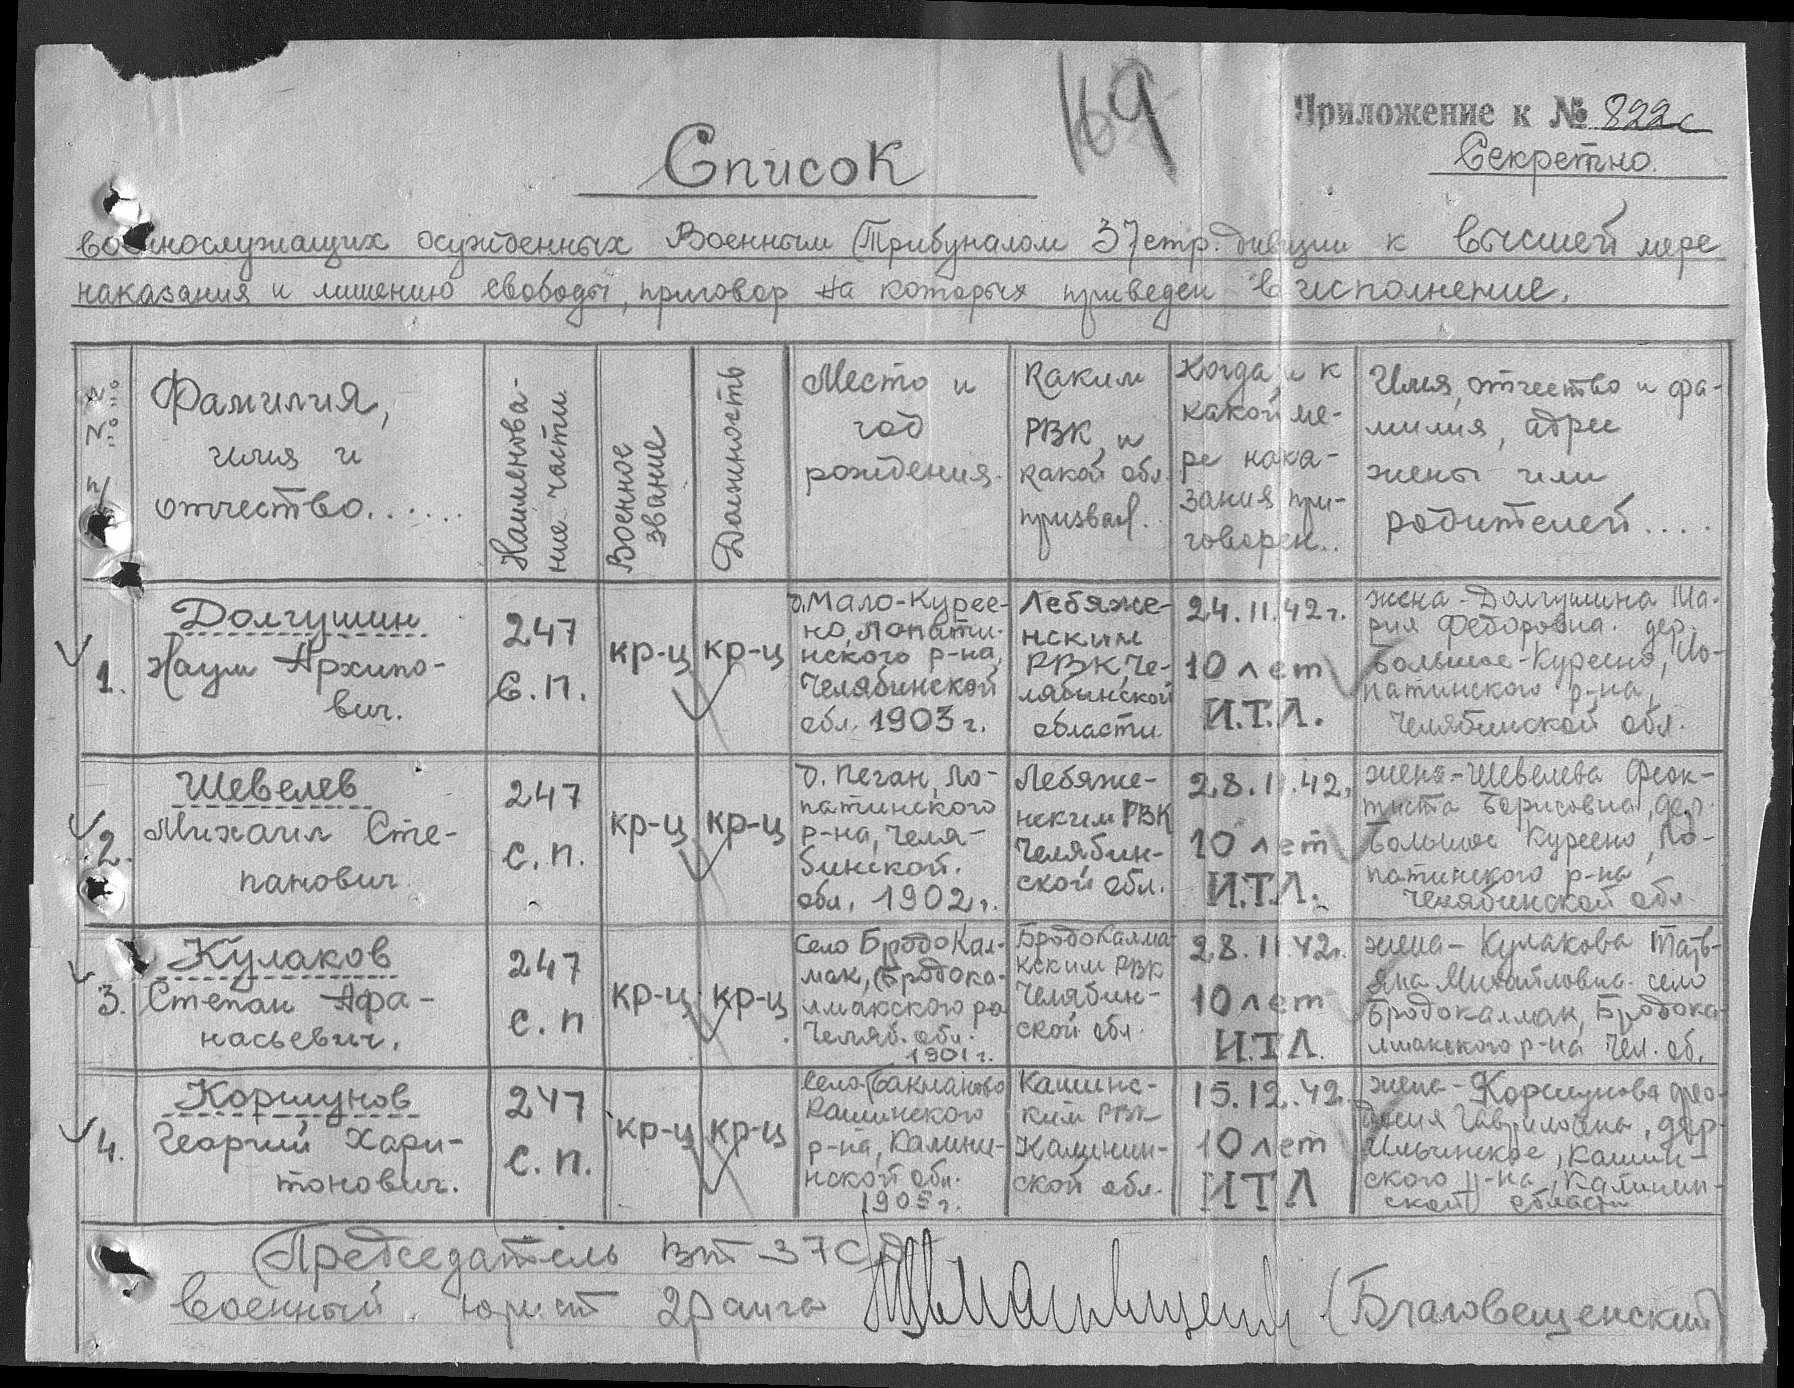 169
Приложение к № 822с
Секретно.
Список
военнослужащих осужденных Военным Трибуналом 37 стр. дивизии к высшей мере
наказания и лишению свободы, приговор на которых приведен в исполнение.
№№ п/
Фамилия,
имя и
отчество......
Наименова-
ние части
Военное
звание
Должность
Место и
год
рождения.
Каким
РВК и
какой обл.
призван.
Когда и к
какой ме-
ре нака-
зания при-
говорен..
Имя, отчество и фа-
милия, адрес
жены или
родителей....
1.
Долгушин
Наум Архипо-
вич.
247
С.П.
кр-ц
кр-ц
д. Мало-Курее-
но, Лопати-
нского р-на,
Челябинской
обл. 1903 г.
Лебяже-
нским
РВК, Че-
лябинской
области
24.11.42 г.
10 лет
И.Т.Л.
жена - Долгушина Ма-
рия Федоровна. дер.
Большое-Куреено, Ло-
патинского р-на,
Челябинской обл.
2.
Шевелев
Михаил Сте-
панович
247
с.п.
кр-ц
кр-ц
д. Пеган, Ло-
патинского
р-на, Челя-
бинской.
обл. 1902 г.
Лебяже-
нским РВК
Челябин-
ской обл.
28.11.42.
10 лет
И.Т.Л.
жена - Шевелева Феок-
тиста Борисовна, дер.
Большое Куреено, Ло-
патинского р-на
Челябинской обл.
3.
Кулаков
Степан Афа-
насьевич.
247
с.п
кр-ц
кр-ц
село БродоКал-
мак, Бродока-
лмакского ра
Челяб. обл.
1901 г.
БродоКалма-
кским РВК
Челябин-
ской обл.
28.11.42 г.
10 лет
И.Т.Л.
жена - Кулакова Тать-
яна Михайловна. село
Бродокалмак, Бродока-
лмакского р-на Чел. об.
4.
Коршунов
Георгий Хари-
тонович.
247
с.п.
кр-ц
кр-ц
село Бакланово
Кашинского
р-на, Калини-
нской обл.
1905 г.
Кашинс-
ким РВК
Калинин-
ской обл.
15.12.42
10 лет
ИТЛ
жена - Коршунова
Гавриловна, дер.
Ильинское, Кашин-
ского р-на, Калинин-
ской области
Председатель ВТ 37СД
военный юрист 2 ранга (Благовещенский)